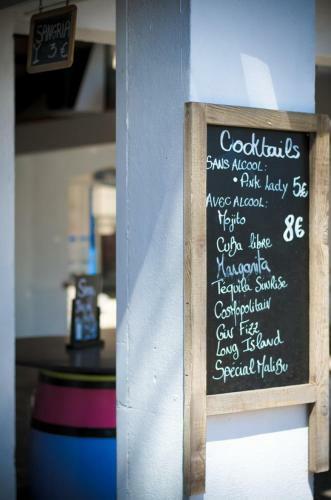 SANGRIA
3€
Cocktails
SANS ALCOOL:
• Pink Lady 5€
AVEC ALCOOL:
Mojito 8€
CuBa libre
Margarita
Tequila Sunrise
Cosmopolitain
Gin Fizz
Long Island
Special MaliBu